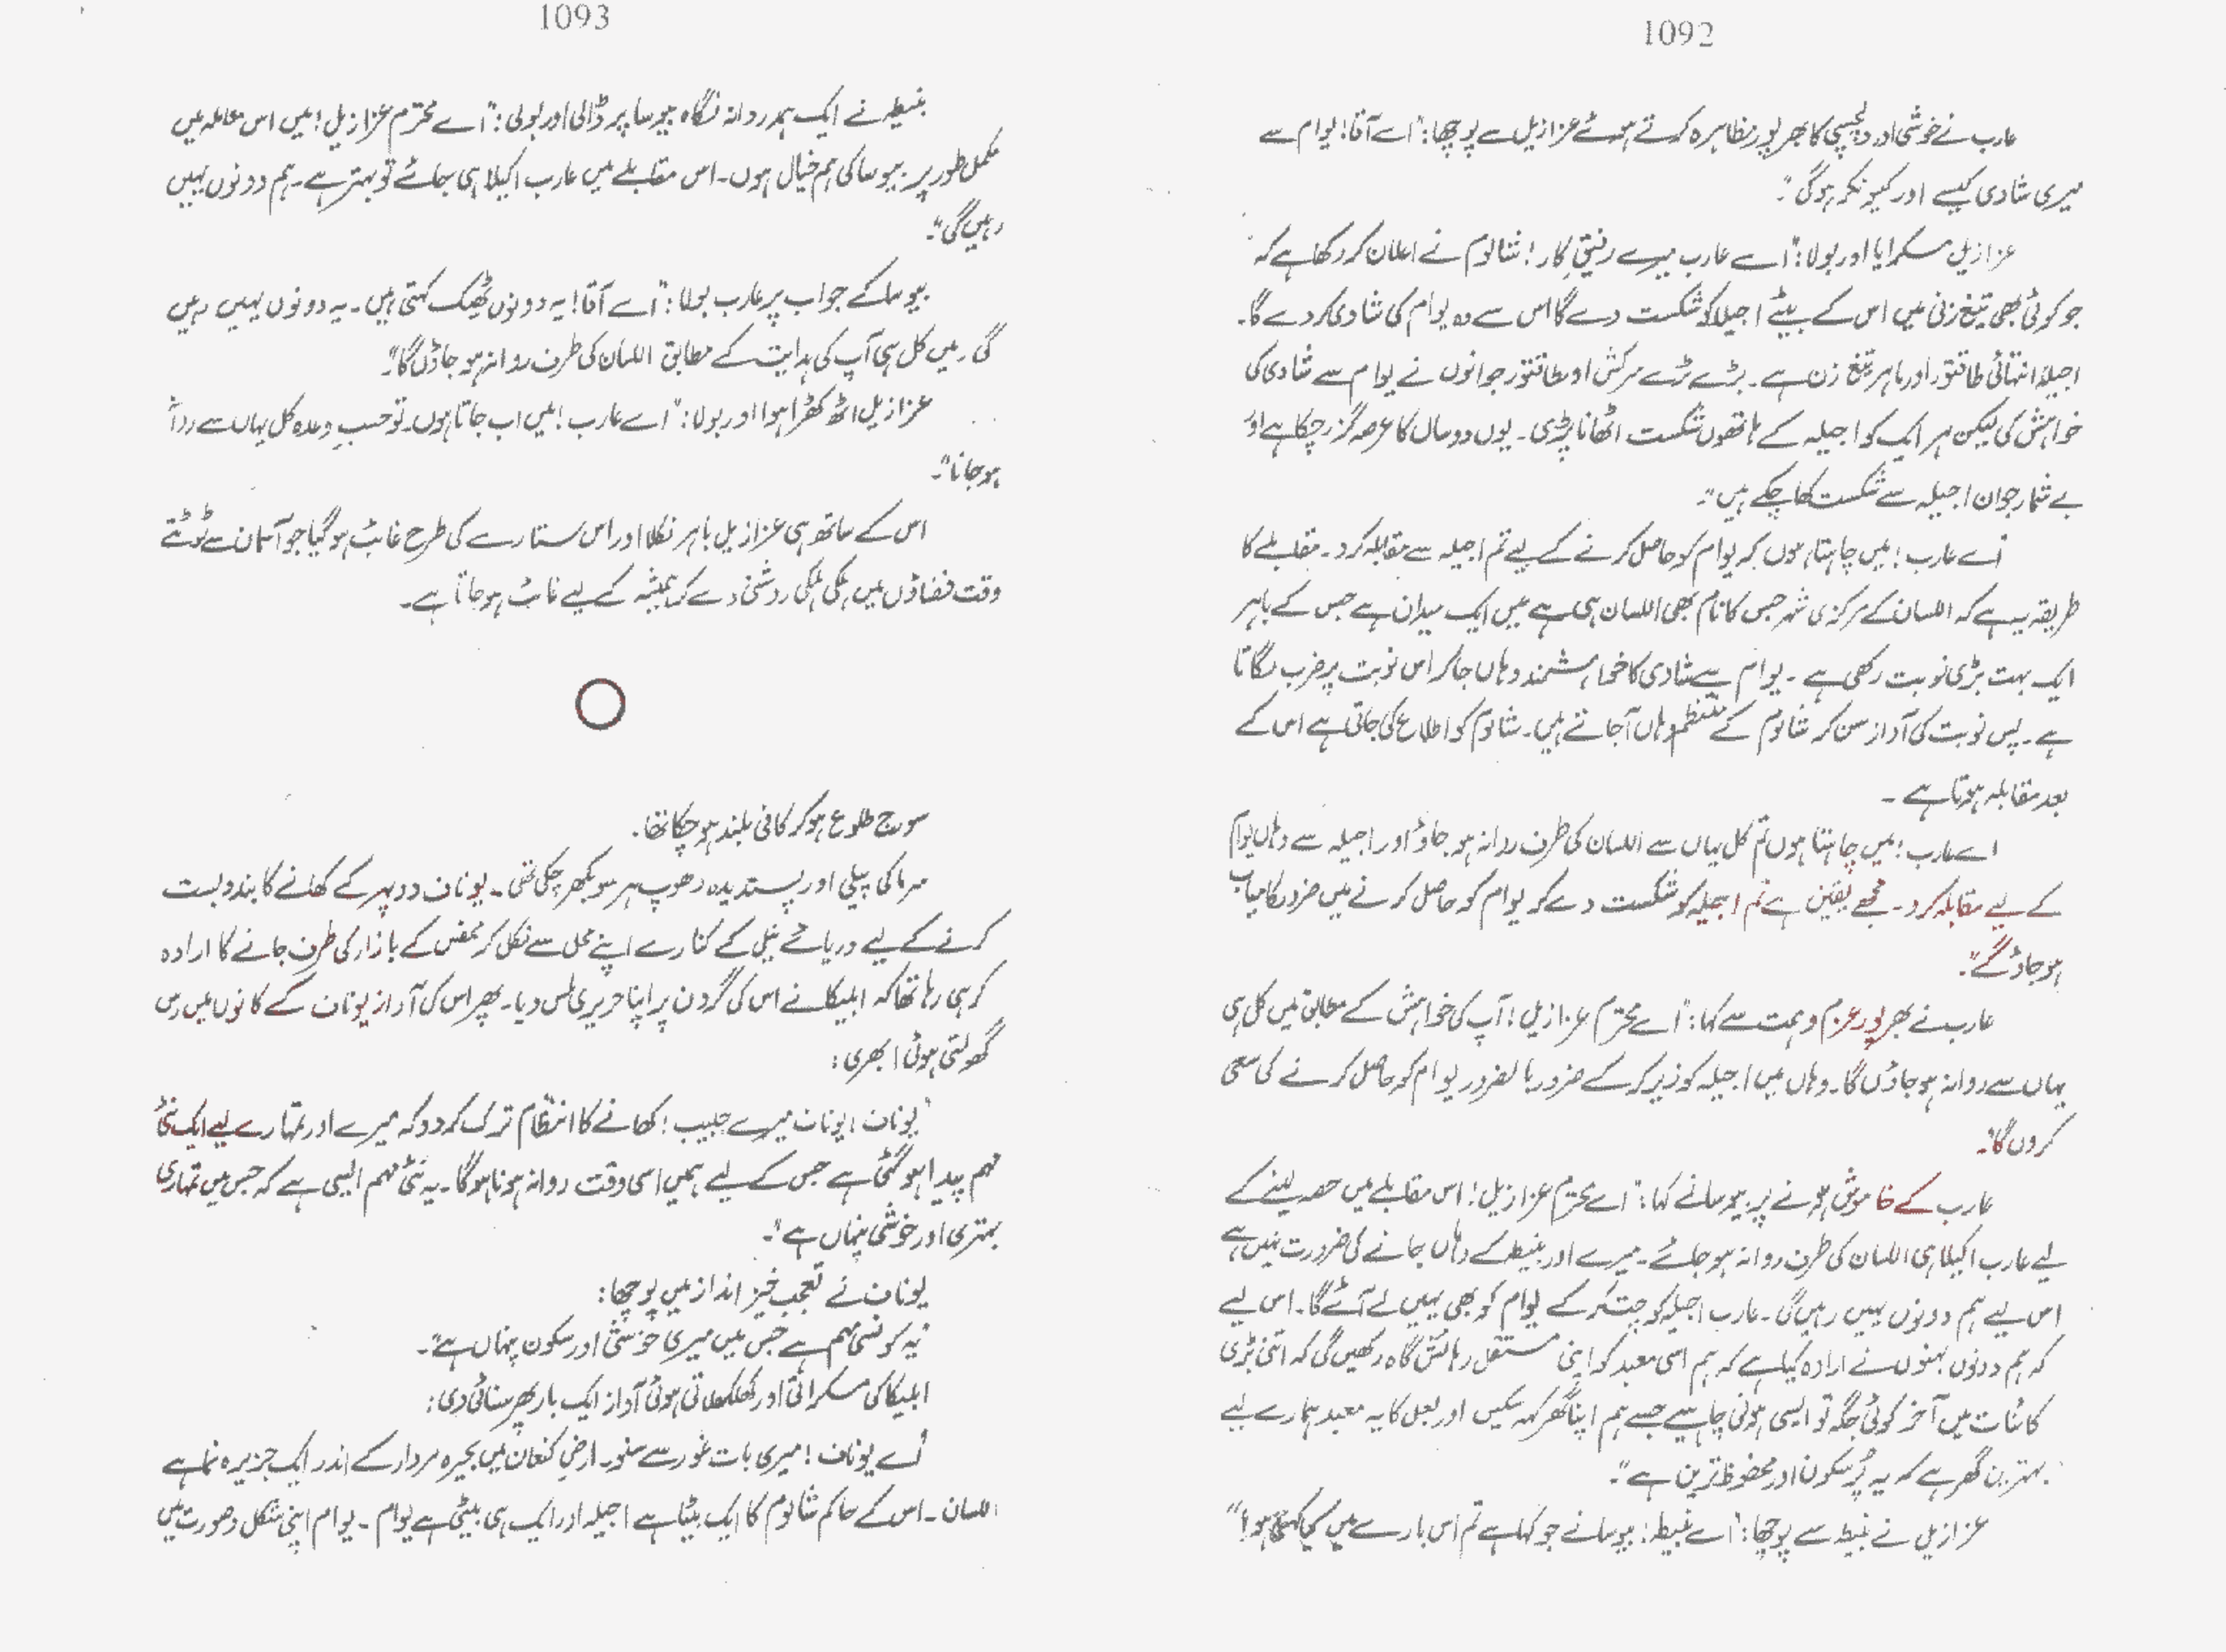 1092
عارب نے خوشی اور دلچسپی کا بھرپور مظاہرہ کرتے ہوئے عزازیل سے پوچھا: "اے آقا! یوام سے
میری شادی کیسے اور کیونکر ہوگی"۔
عزازیل مسکرایا اور بولا: "اے عارب میرے رفیقِ کار! شالوم نے اعلان کر رکھا ہے کہ
جو کوئی بھی تیغ زنی میں اس کے بیٹے اجیلا کو شکست دے گا اس سے وہ یوام کی شادی کر دے گا۔
اجیلہ انتہائی طاقتور اور ماہر تیغ زن ہے۔ بڑے بڑے سرکش اور طاقتور جوانوں نے یوام سے شادی کی
خواہش کی لیکن ہر ایک کو اجیلہ کے ہاتھوں شکست اٹھانا پڑی۔ یوں دو سال کا عرصہ گزر چکا ہے اور
بے شمار جوان اجیلہ سے شکست کھا چکے ہیں"۔
"اے عارب! میں چاہتا ہوں کہ یوام کو حاصل کرنے کے لیے تم اجیلہ سے مقابلہ کرو۔ مقابلے کا
طریقہ یہ ہے کہ اللسان کے مرکزی شہر جس کا نام بھی اللسان ہی ہے میں ایک میدان ہے جس کے باہر
ایک بہت بڑی نوبت رکھی ہے۔ یوام سے شادی کا خواہشمند وہاں جا کر اس نوبت پر ضرب لگاتا
ہے۔ پس نوبت کی آواز سن کر شالوم کے منتظم وہاں آجاتے ہیں۔ شالوم کو اطلاع کی جاتی ہے اس کے
بعد مقابلہ ہوتا ہے۔
اے عارب! میں چاہتا ہوں تم کل یہاں سے اللسان کی طرف روانہ ہو جاؤ اور اجیلہ سے وہاں یوام
کے لیے مقابلہ کرو۔ مجھے یقین ہے تم اجیلہ کو شکست دے کر یوام کو حاصل کرنے میں ضرور کامیاب
ہو جاؤ گے"۔
عارب نے بھرپور عزم و ہمت سے کہا: "اے محترم عزازیل! آپ کی خواہش کے مطابق میں کل ہی
یہاں سے روانہ ہو جاؤں گا۔ وہاں میں اجیلہ کو زیر کر کے ضرور بالضرور یوام کو حاصل کرنے کی سعی
کروں گا"۔
عارب کے خاموش ہونے پر بیوسا نے کہا: "اے محترم عزازیل! اس مقابلے میں حصہ لینے کے
لیے عارب اکیلا ہی اللسان کی طرف روانہ ہو جائے۔ میرے اور بنیطہ کے وہاں جانے کی ضرورت نہیں ہے
اس لیے ہم دونوں یہیں رہیں گی۔ عارب اجیلہ کو جیت کر کے یوام کو بھی یہیں لے آئے گا۔ اس لیے
کہ ہم دونوں بہنوں نے ارادہ کیا ہے کہ ہم اسی معبد کو اپنی مستقل رہائش گاہ رکھیں گی کہ اتنی بڑی
کائنات میں آخر کوئی جگہ تو ایسی ہونی چاہیے جسے ہم اپنا گھر کہہ سکیں اور بعل کا یہ معبد ہمارے لیے
بہترین گھر ہے کہ یہ پُرسکون اور محفوظ ترین ہے"۔
عزازیل نے بنیطہ سے پوچھا: "اے بنیطہ! بیوسا نے جو کہا ہے تم اس بارے میں کیا کہتی ہو!"
1093
بنیطہ نے ایک ہمدردانہ نگاہ بیوسا پر ڈالی اور بولی: "اے محترم عزازیل! میں اس معاملہ میں
مکمل طور پر بیوسا کی ہم خیال ہوں۔ اس مقابلے میں عارب اکیلا ہی جائے تو بہتر ہے۔ ہم دونوں یہیں
رہیں گی"۔
بیوسا کے جواب پر عارب بولا: "اے آقا! یہ دونوں ٹھیک کہتی ہیں۔ یہ دونوں یہیں رہیں
گی۔ میں کل ہی آپ کی ہدایت کے مطابق اللسان کی طرف روانہ ہو جاؤں گا"۔
عزازیل اٹھ کھڑا ہوا اور بولا: "اے عارب! میں اب جاتا ہوں۔ تو حسبِ وعدہ کل یہاں سے روانہ
ہو جانا"۔
اس کے ساتھ ہی عزازیل باہر نکلا اور اس ستارے کی طرح غائب ہو گیا جو آسمان سے ٹوٹتے
وقت فضاؤں میں ہلکی ہلکی روشنی دے کر ہمیشہ کے لیے غائب ہو جاتا ہے۔
سورج طلوع ہو کر کافی بلند ہو چکا تھا۔
سرما کی پیلی اور پسندیدہ دھوپ ہر سو بکھر چکی تھی۔ یوناف دوپہر کے کھانے کا بندوبست
کرنے کے لیے دریائے نیل کے کنارے اپنے محل سے نکل کر ممفس کے بازار کی طرف جانے کا ارادہ
کر ہی رہا تھا کہ ابلیکا نے اس کی گردن پر اپنا حریری لمس دیا۔ پھر اس کی آواز یوناف کے کانوں میں رس
گھولتی ہوئی ابھری:
"یوناف! یوناف میرے حبیب! کھانے کا انتظام ترک کر دو کہ میرے اور تمہارے لیے ایک نئی
مہم پیدا ہو گئی ہے جس کے لیے ہمیں اسی وقت روانہ ہونا ہوگا۔ یہ نئی مہم ایسی ہے کہ جس میں تمہاری
بہتری اور خوشی پنہاں ہے"۔
یوناف نے تعجب خیز انداز میں پوچھا:
"یہ کونسی مہم ہے جس میں میری خوشی اور سکون پنہاں ہے"۔
ابلیکا کی مسکراتی اور کھلکھلاتی ہوئی آواز ایک بار پھر سنائی دی:
"اے یوناف! میری بات غور سے سنو۔ ارضِ کنعان میں بحیرہ مردار کے اندر ایک جزیرہ نما ہے
اللسان۔ اس کے حاکم شالوم کا ایک بیٹا ہے اجیلہ اور ایک ہی بیٹی ہے یوام۔ یوام اپنی شکل و صورت میں